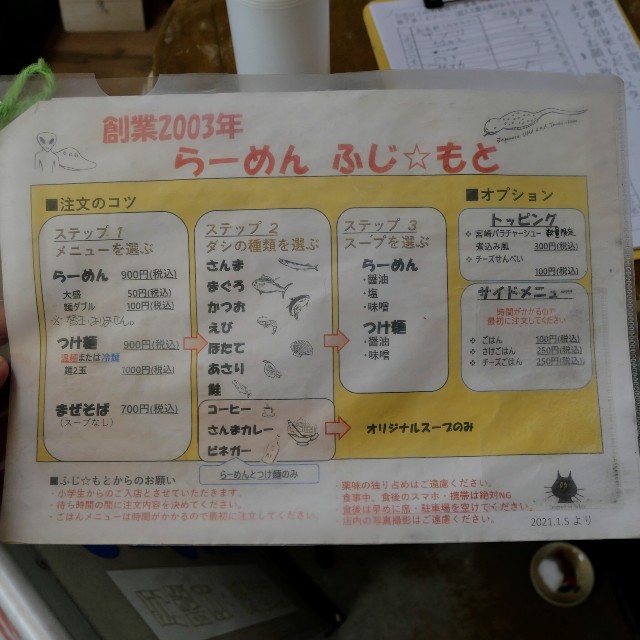 創業2003年
らーめん ふじ☆もと
■注文のコツ
ステップ 1
メニューを選ぶ
らーめん 900円(税込)
大盛 50円(税込)
麺ダブル 100円(税込)
つけ麺 900円(税込)
温麺または冷麺
麺2玉 1000円(税込)
まぜそば 700円(税込)
(スープなし)
ステップ 2
ダシの種類を選ぶ
さんま
まぐろ
かつお
えび
ほたて
あさり
鮭
コーヒー
さんまカレー
ビネガー
らーめんとつけ麺のみ
ステップ 3
スープを選ぶ
らーめん
・醤油
・塩
・味噌
つけ麺
・醤油
・味噌
オリジナルスープのみ
■オプション
トッピング
宮崎バラチャーシュー
煮込み風 300円(税込)
チーズせんべい
100円(税込)
サイドメニュー
時間がかかるので
最初に注文してください
ごはん 100円(税込)
さけごはん 250円(税込)
チーズごはん 250円(税込)
■ふじ☆もとからのお願い
・小学生からのご入店とさせていただきます。
・待ち時間の間に注文内容を決めてください。
・ごはんメニューは時間がかかるので最初に注文してください。
・薬味の独り占めはご遠慮ください。
・食事中、食後のスマホ・携帯は絶対NG
・食後は早めに席・駐車場を空けてください。
店内の写真撮影はご遠慮ください。
2021.1.5 より